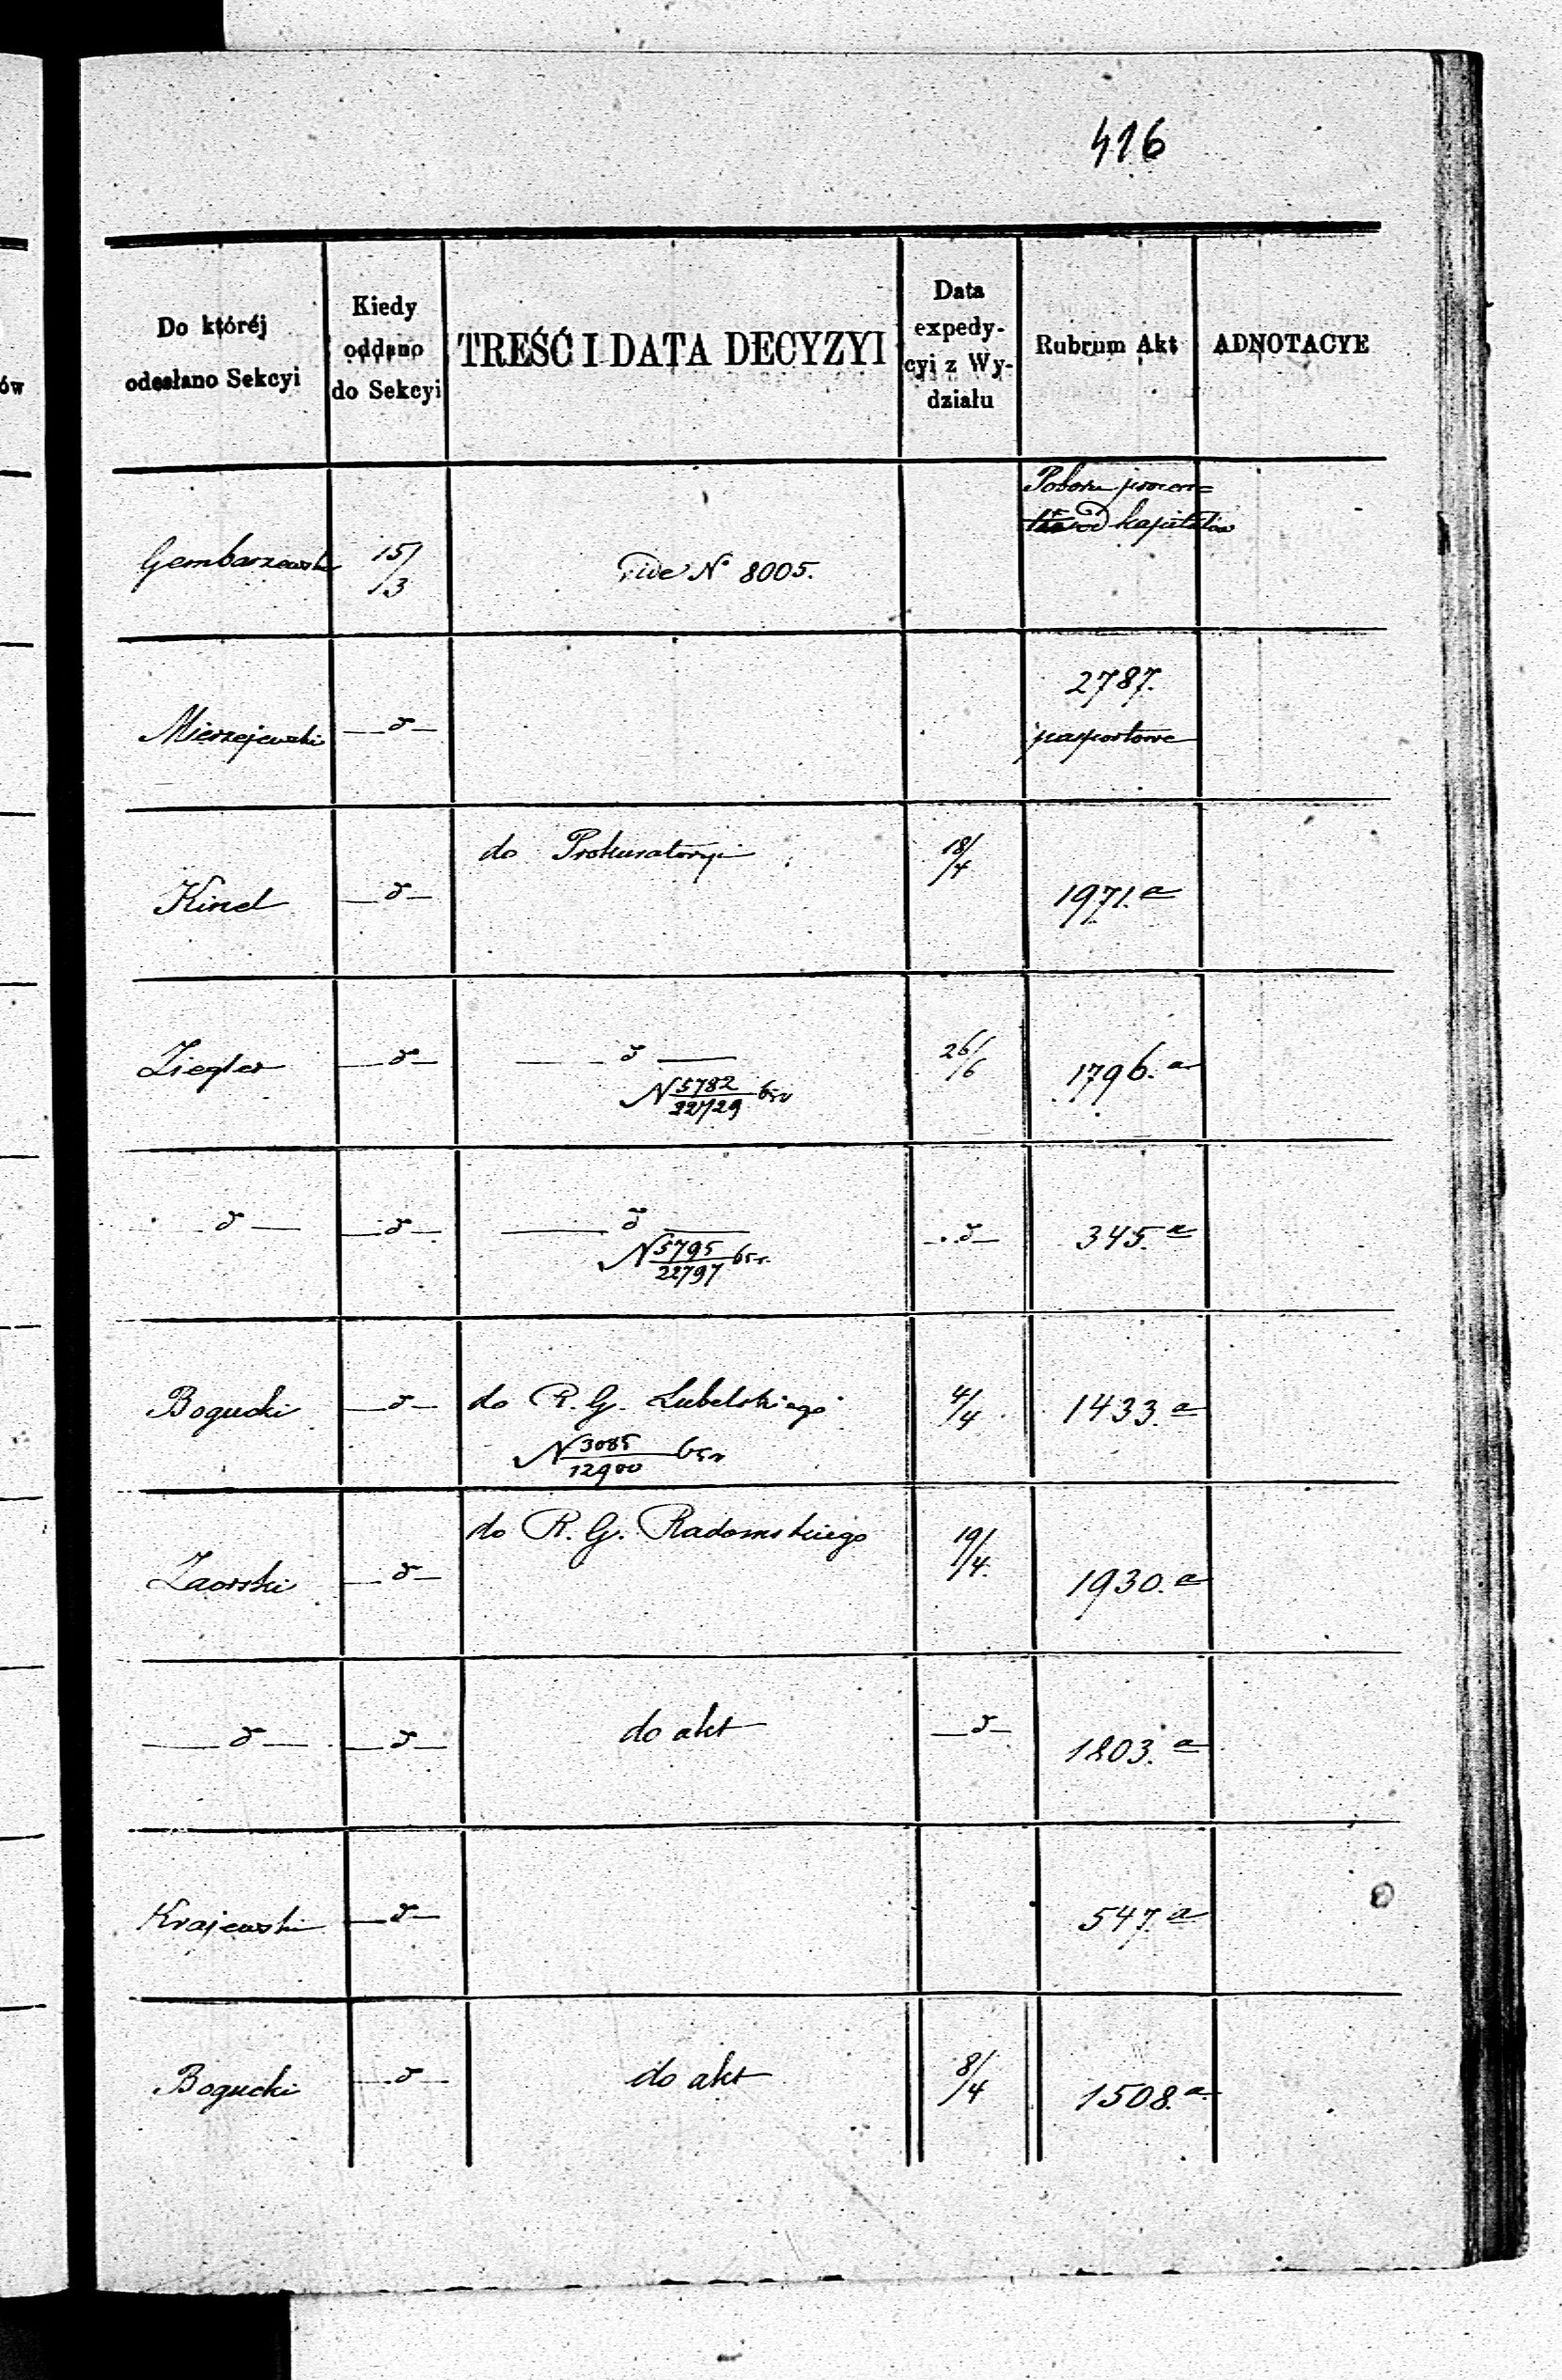 416
ów
Do któréj
odesłano Sekcyi
Kiedy
oddano
do Sekcyi
TREŚĆ I DATA DECYZYI
Data
expedy-
cyi z Wy-
działu
Rubrum Akt
ADNOTACYE
Poboru procen=
od kapitałów
Gembarzewski 15/3 Vide N° 8005.
2787.
Mierzejewski —ď— paszportowe
do Prokuratoryi 18/4
Kind —ď— 1971.a
Ziegler —ď— —ď— 26/6 1796.a
N 5782/22729
—ď— —ď— —ď— —ď— 345.a
N 5795/22797
Bogucki —ď— do R. G. Lubelskiego 4/4 1433.a
N 3085/12900
do R. G. Radomskiego 19/4.
Zaorski —ď— 1930.a
—ď— —ď— do akt —ď— 1803.a
Krajewski —ď— 547.a
Bogucki —ď— do akt 8/4 1508.a